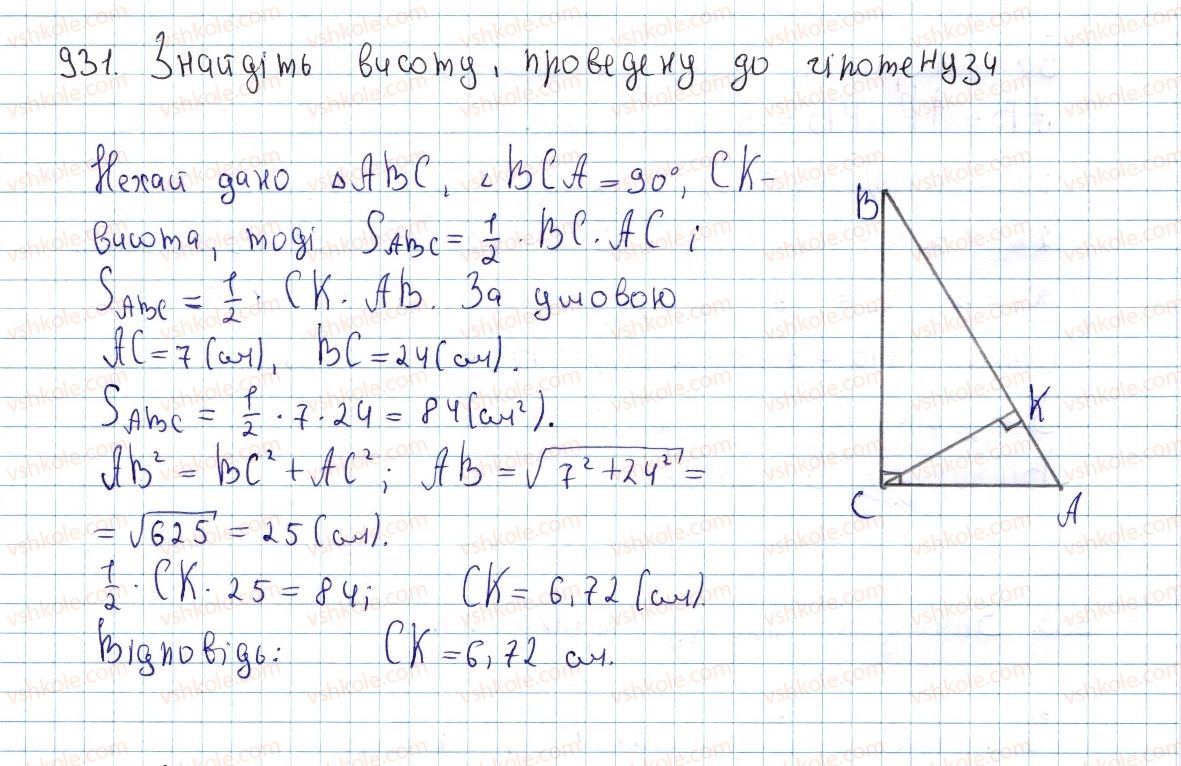 931. Знайдіть висоту, проведену до гіпотенузи
Нехай дано △ABC, ∠BCA = 90°, CK –
висота, тоді S_ABC = 1/2 · BC · AC ;
S_ABC = 1/2 · CK · AB. За умовою
AC = 7 (см), BC = 24 (см).
S_ABC = 1/2 · 7 · 24 = 84 (см²).
AB² = BC² + AC²; AB = √(7² + 24²) =
= √625 = 25 (см).
1/2 · CK · 25 = 84; CK = 6,72 (см).
Відповідь: CK = 6,72 см.
B
K
C
A
vshkole.com